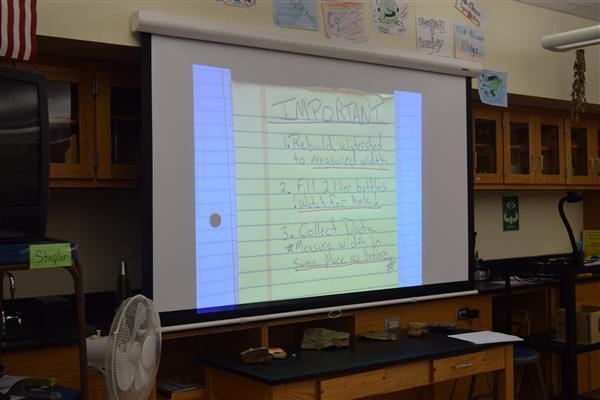 IMPORTANT
1. Rebuild watershed
to measured width
2. Fill 2 liter bottles
! Watch for hole!
3. Collect Data
*Measure width in
same place as before*
Stapler